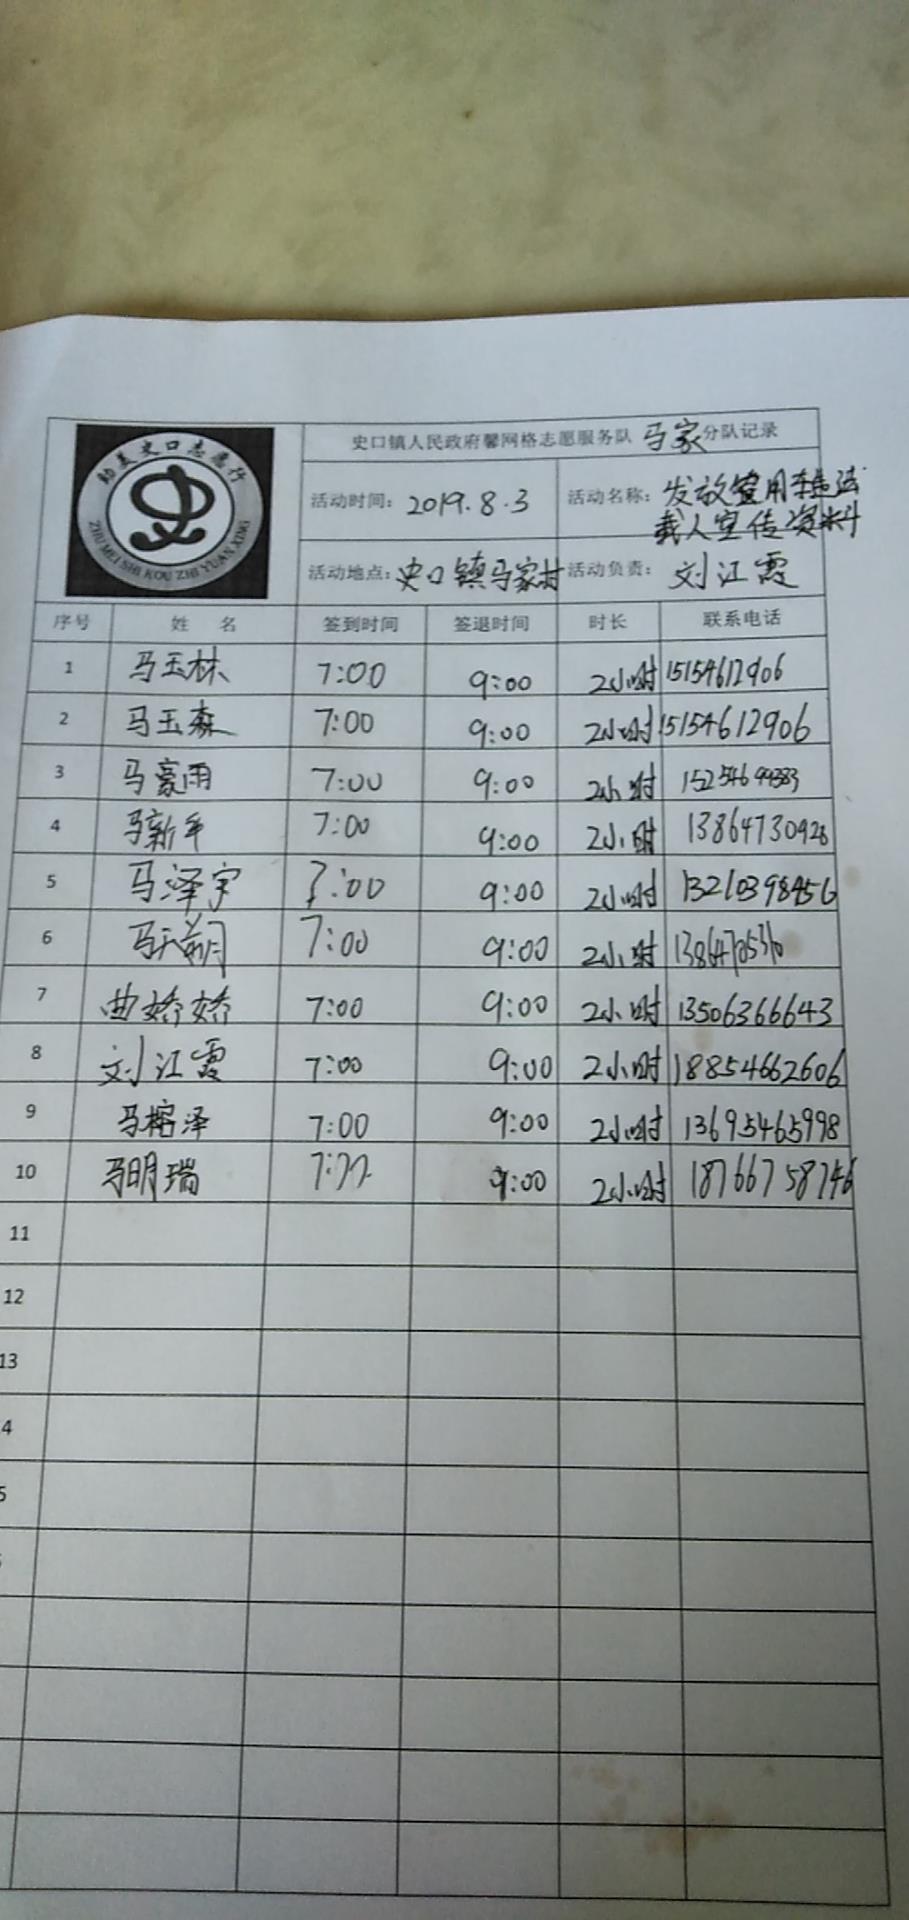 助美史口志愿行
ZHU MEI SHI KOU ZHI YUAN XING
史口镇人民政府馨网格志愿服务队 马家 分队记录
活动时间： 2019.8.3 活动名称： 发放营用车违法
载人宣传资料
活动地点： 史口镇马家村 活动负责： 刘江霞
序号 姓 名 签到时间 签退时间 时长 联系电话
1 马玉林 7:00 9:00 2小时 15154612906
2 马玉森 7:00 9:00 2小时 15154612906
3 马豪雨 7:00 9:00 2小时
4 马新年 7:00 9:00 2小时 13864730928
5 马泽宇 7:00 9:00 2小时 13210398456
6 7:00 9:00 2小时
7 曲娇娇 7:00 9:00 2小时 13506366643
8 刘江霞 7:00 9:00 2小时 18854662606
9 马榕泽 7:00 9:00 2小时 13695465998
10 马明瑞 9:00 2小时 18766758746
11
12
13
4
5